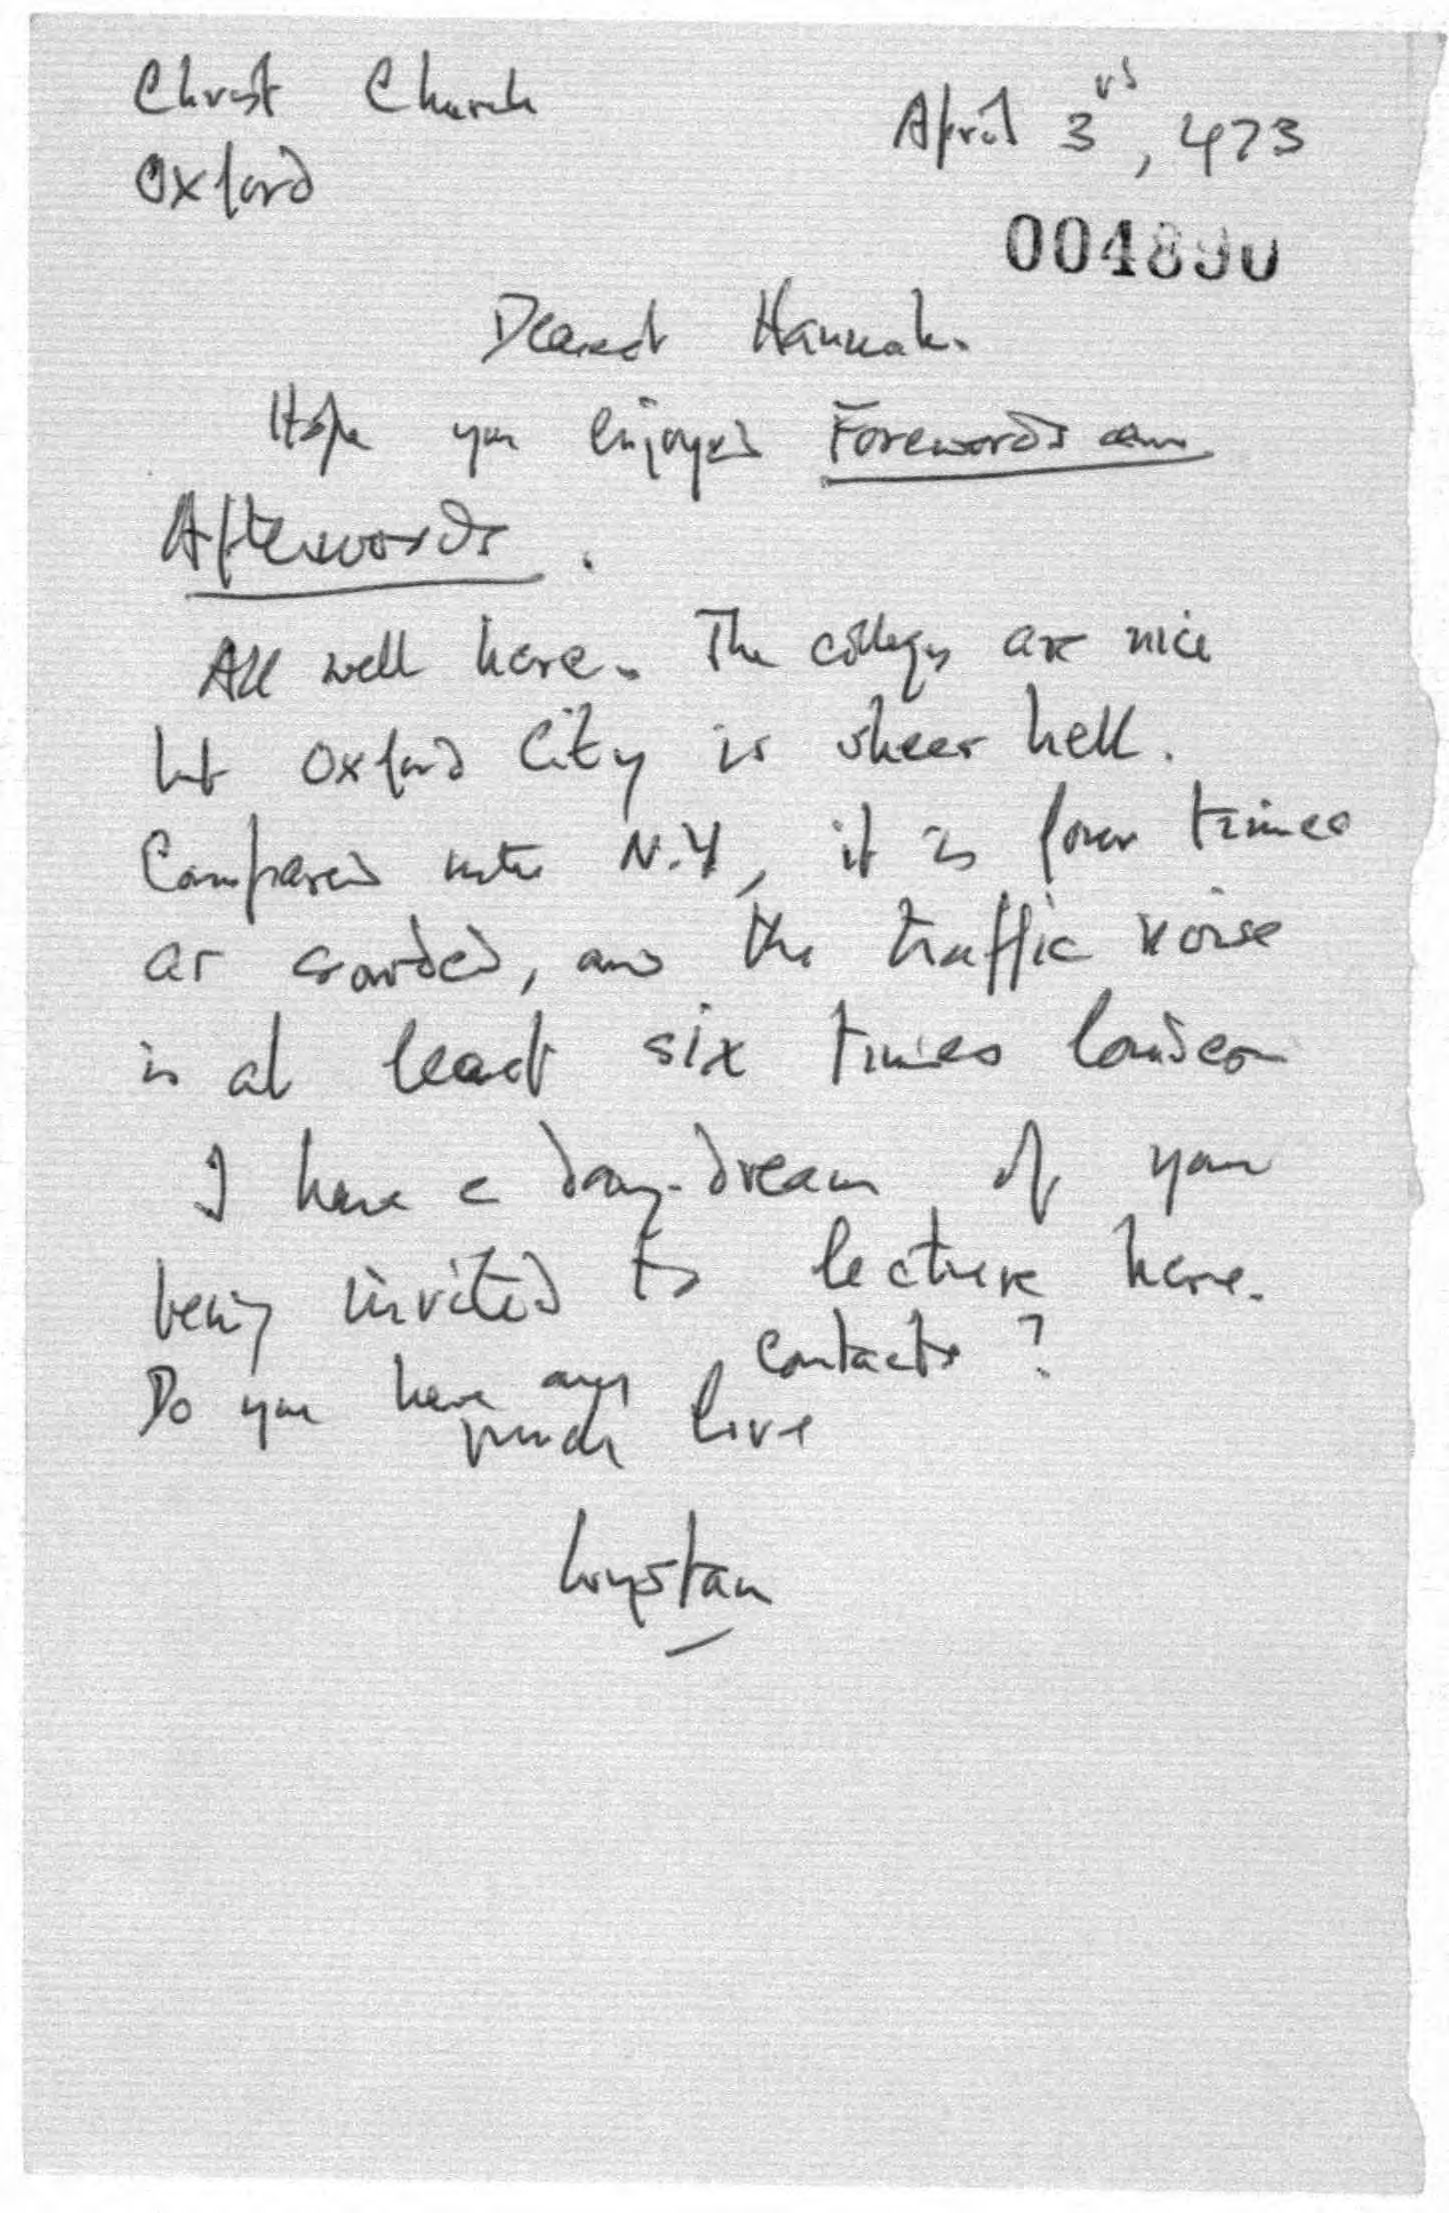 Christ Church
Oxford
April 3rd, 473
004890
Dearest Hannah.
Hope you enjoyed Forewords and
Afterwords.
All well here. The colleges are nice
but Oxford City is sheer hell.
Compared with N.Y, it is four times
as crowded, and the traffic noise
is at least six times louder
I have a day-dream of you
being invited to lecture here.
Do you have any contacts?
much love
Wystan